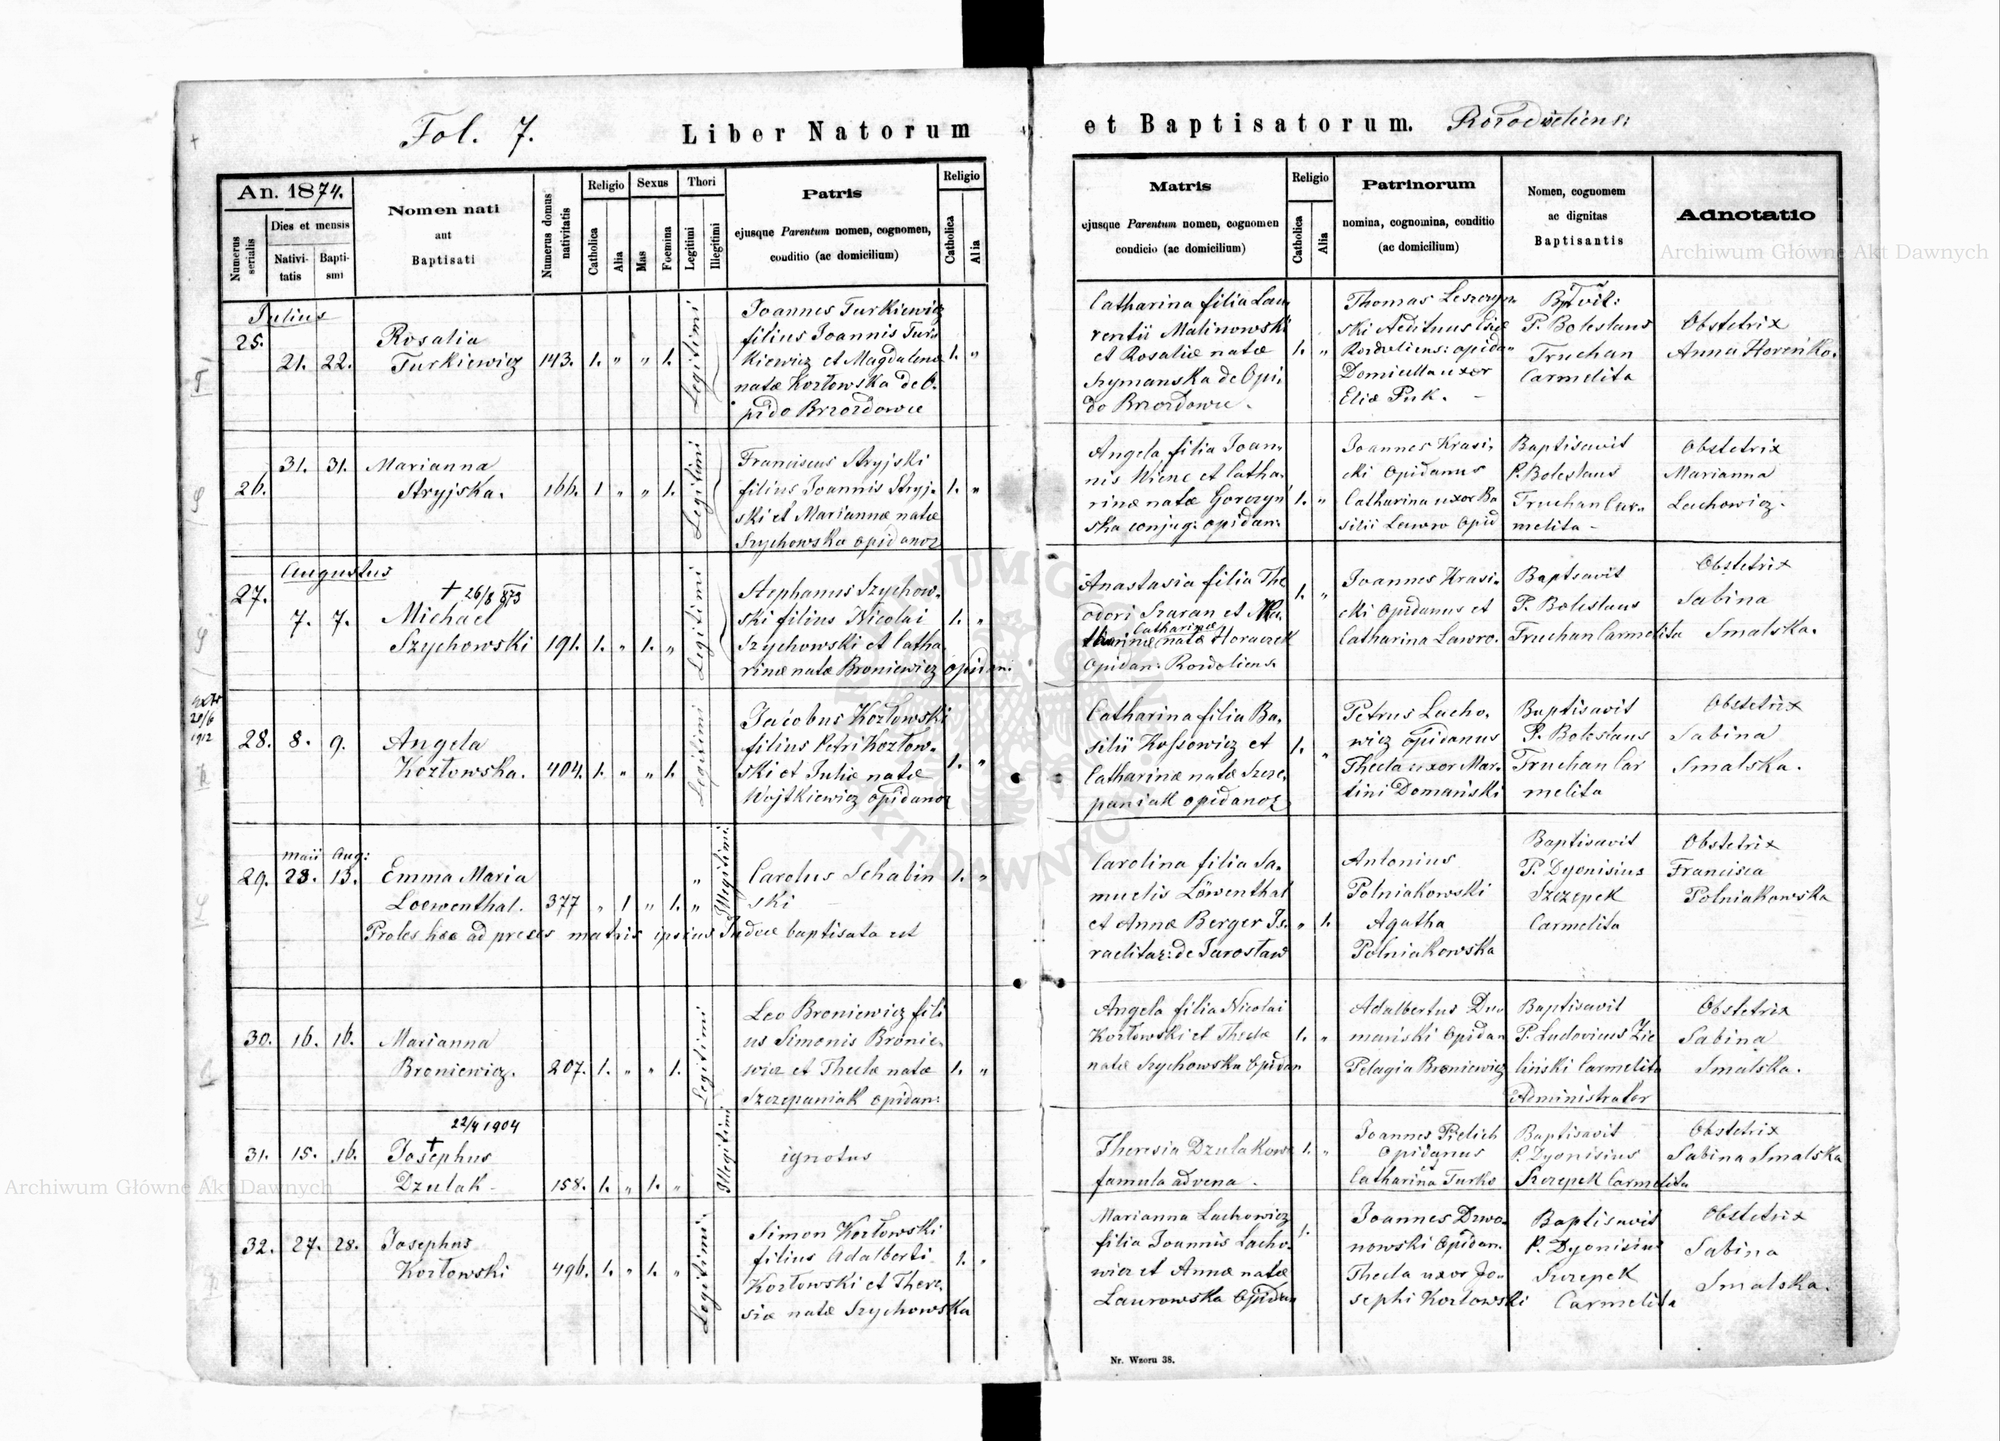 Fol. 7.
Liber Natorum
et Baptisatorum.
An. 1874.
Numerus serialis
Dies et mensis
Nativitatis
Baptismi
Nomen nati
aut
Baptisati
Numerus domus nativitatis
Religio
Catholica
Alia
Sexus
Mas
Foemina
Thori
Legitimi
Illegitimi
Patris
ejusque Parentum nomen, cognomen,
conditio (ac domicilium)
Religio
Catholica
Alia
Matris
ejusque Parentum nomen, cognomen
condicio (ac domicilium)
Religio
Catholica
Alia
Patrinorum
nomina, cognomina, conditio
(ac domicilium)
Nomen, cognomem
ac dignitas
Baptisantis
Adnotatio
Julius
25.
21. 22.
Rosalia
Turkiewicz
143. 1. " " 1.
Legitimi
Joannes Turkiewicz
filius Joannis Tur
kiewicz et Magdalenæ
natæ Kozłowska de O.
pido Brzozdowce
1. "
Catharina filia Lau
rentii Malinowski
et Rosaliæ natæ
Szymanska de Opi,
do Brzozdowce.
1. "
Thomas Leszczyn
ski Aedituus
opida
Domicella uxor
Eliæ Puk. -
P. Boleslaus
Truchan
Carmelita
Obstetrix
Anna Horeńko.
26.
31. 31.
Marianna
Stryjska.
166. 1 " " 1.
Legitimi
Franciscus Stryjski
filius Joannis Stryj-
ski et Mariannæ natæ
Szychowska opidanor
1. "
Angela filia Joan-
nis Wiene et Catha-
rinæ natæ Gorczyń
ska conjug: opidan:
1. "
Joannes Krasi,
cki Opidanus
Catharina uxor Ba
silii Lawro Opid
Baptisavit
P. Boleslaus
Truchan Car-
melita -
Obstetrix
Marianna
Lachowicz.
Augustus
27.
7. 7.
+ 26/8 873
Michael
Szychowski
191. 1. " 1. "
Legitimi
Stephanus Szychow-
ski filius Nicolai
Szychowski et Catha
rinæ natæ Broniewicz opidan:
1. "
Anastasia filia The
odori Szaran et
Catharinæ
natæ Horaczek
Opidan:
1. "
Joannes Krasi-
cki Opidanus et
Catharina Lawro.
Baptsavit
P. Boleslaus
Truchan Carmelita
Obstetrix
Sabina
Smalska.
20/6
1912
28. 8. 9.
Angela
Kozłowska.
404. 1. " " 1.
Legitimi
Jacobus Kozłowski
filius Petri Kozłow-
ski et Juliæ natæ
Wojtkiewicz opidanor
1. "
Catharina filia Ba,
silii Kossowicz et
Catharinæ natæ Szcze,
paniak opidanor
1. "
Petrus Lacho,
wicz opidanus
Thecla uxor Mar-
tini Domański
Baptisavit
P. Boleslaus
Truchan Car
melita
Obstetrix
Sabina
Smalska.
maii Aug:
29. 23. 13.
Emma Maria
Loewenthal.
377 " 1 " 1. "
Illegitimi.
Proles hæc ad preces matris ipsius Judææ baptisata est
Carolus Schabin
ski -
1. "
Carolina filia Sa-
muelis Löwenthal
et Annæ Berger Is-
raelitar: de Jarosław
" 1.
Antonius
Polniakowski
Agatha
Polniakowska
Baptisavit
P. Dyonisius
Szczepek
Carmelita
Obstetrix
Francisca
Polniakowska
30. 16. 16.
Marianna
Broniewicz.
207. 1. " " 1.
Legitimi
Leo Broniewicz fili
us Simonis Bronie-
wicz et Theclæ natæ
Szczepaniak opidan:
1. "
Angela filia Nicolai
Kozłowski et Theclæ
natæ Szychowska Opidan
1. "
Adalbertus Do
mański Opidan
Pelagia Broniewicz
Baptisavit
P. Ludovicus Zie
liński Carmelita
Administrator
Obstetrix
Sabina
Smalska.
22/4 1904
31. 15. 16.
+
Josephus
Dzulak -
158. 1. " 1. "
Illegitimi
ignotus
Theresia Dzulakow
famula advena.
1. "
Joannes Pielich
Opidanus
et
Catharina Turko
Baptisavit
P. Dyonisius
Szczepek Carmelita
Obstetrix
Sabina Smalska
32. 27. 28.
Josephus
Kozłowski
496. 1. " 1. "
Legitimi.
Simon Kozłowski
filius Adalberti
Kozłowski et There,
siæ natæ Szychowska
1. "
Marianna Lachowicz
filia Joannis Lacho-
wicz et Annæ natæ
Laurowska Opidan
1.
Joannes Dzwo-
nowski Opidan.
Thecla uxor Jo-
sephi Kozłowski
Baptisavit
P. Dyonisius
Szczepek
Carmelita
Obstetrix
Sabina
Smalska.
Nr. Wzoru 38.
Archiwum Główne Akt Dawnych
Archiwum Główne Akt Dawnych